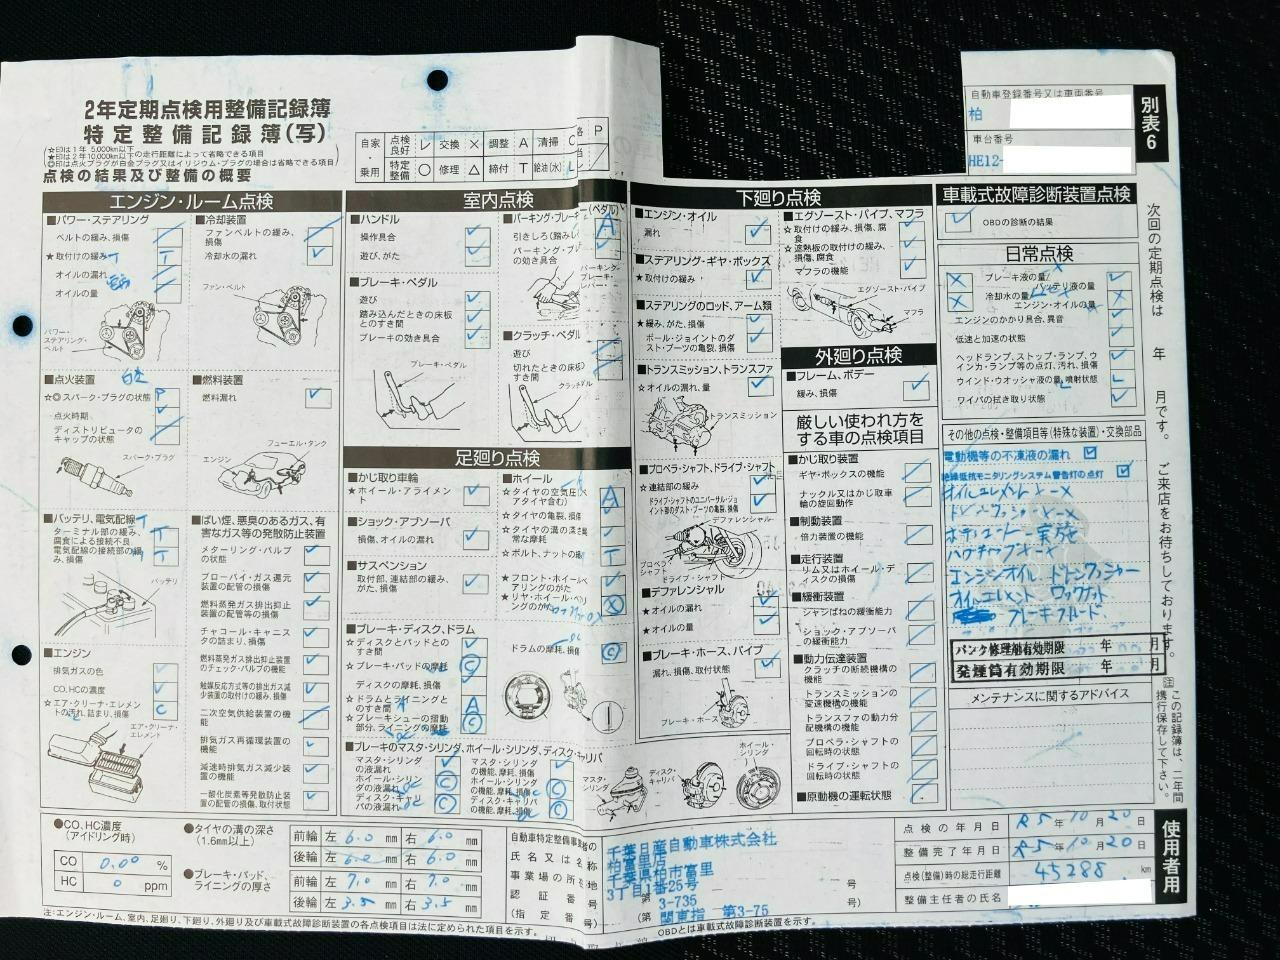 2年定期点検用整備記録簿
特定整備記録簿(写)
☆印は1年 5,000km以下
★印は2年10,000km以下の走行距離によって省略できる項目
◎印は点火プラグが白金プラグ又はイリジウム・プラグの場合は省略できる項目
点検の結果及び整備の概要
自家・乗用
点検良好 レ 交換 × 調整 A 清掃 C
特定整備 ○ 修理 △ 締付 T 給油(水) L
P
自動車登録番号又は車両番号
柏
車台番号
HE12-
別表6
エンジン・ルーム点検
■パワー・ステアリング
ベルトの緩み、損傷
★取付けの緩み
オイルの漏れ
オイルの量
パワー・ステアリング・ベルト
■冷却装置
ファンベルトの緩み、損傷
冷却水の漏れ
ファン・ベルト
■点火装置
☆◎スパーク・プラグの状態 P
点火時期
ディストリビュータのキャップの状態
スパーク・プラグ
■燃料装置
燃料漏れ
フューエル・タンク
エンジン
■バッテリ、電気配線
ターミナル部の緩み、腐食による接続不良
電気配線の接続部の緩み、損傷
バッテリ
■ばい煙、悪臭のあるガス、有害なガス等の発散防止装置
メターリング・バルブの状態
ブローバイ・ガス還元装置の配管の損傷
燃料蒸発ガス排出抑止装置の配管等の損傷
チャコール・キャニスタの詰まり、損傷
燃料蒸発ガス排出抑止装置のチェック・バルブの機能
触媒反応方式等の排出ガス減少装置の取付けの緩み、損傷
二次空気供給装置の機能
排気ガス再循環装置の機能
減速時排気ガス減少装置の機能
一酸化炭素等発散防止装置の配管の損傷、取付状態
■エンジン
排気ガスの色
CO、HCの濃度
☆エア・クリーナ・エレメントの汚れ、詰まり、損傷 C
エア・クリーナ・エレメント
室内点検
■ハンドル
操作具合
遊び、がた
■ブレーキ・ペダル
遊び
踏み込んだときの床板とのすき間
ブレーキの効き具合
ブレーキ・ペダル
引きしろ(踏み A
パーキング・ブ
の効き具合
■クラッチ・ペダル
遊び
切れたときの床板とのすき間
足廻り点検
■かじ取り車輪
★ホイール・アライメント
■ショック・アブソーバ
損傷、オイルの漏れ
■サスペンション
取付部、連結部の緩み、がた、損傷
■ブレーキ・ディスク、ドラム
☆ディスクとパッドとのすき間
☆ブレーキ・パッドの摩耗
ディスクの摩耗、損傷
☆ドラムとライニングとのすき間 A
☆ブレーキシューの摺動部分、ライニングの摩耗
ドラムの摩耗、損傷
■ブレーキのマスタ・シリンダ、ホイール・シリンダ、ディスク・キャリパ
マスタ・シリンダの液漏れ
ホイール・シリンダの液漏れ
ディスク・キャリパの液漏れ
マスタ・シリンダの機能、摩耗、損傷
ホイール・シリンダの機能、摩耗、損傷
ディスク・キャリパの機能、摩耗、損傷
■ホイール
☆タイヤの空気圧 A
☆タイヤの亀裂、損傷
☆タイヤの溝の深さ
★ボルト、ナットの緩み T
★フロント・ホイール・ベアリングのがた
マスタ・シリンダ
ディスク・キャリパ
ホイール・シリンダ
下廻り点検
■エンジン・オイル
漏れ
■ステアリング・ギヤ・ボックス
★取付けの緩み
■ステアリングのロッド、アーム類
★緩み、がた、損傷
ボール・ジョイントのダスト・ブーツの亀裂、損傷
■トランスミッション、トランスファ
☆オイルの漏れ、量
トランスミッション
■プロペラ・シャフト、ドライブ・シャフト
☆連結部の緩み
ドライブ・シャフトのユニバーサル・ジョイント部のダスト・ブーツの亀裂、損傷
デファレンシャル
プロペラ・シャフト
ドライブ・シャフト
■デファレンシャル
★オイルの漏れ
★オイルの量
■ブレーキ・ホース、パイプ
漏れ、損傷、取付状態
ブレーキ・ホース
■エグゾースト・パイプ、マフラ
☆取付けの緩み、損傷、腐食
☆遮熱板の取付けの緩み、損傷、腐食
マフラの機能
エグゾースト・パイプ
マフラ
外廻り点検
■フレーム、ボデー
緩み、損傷
厳しい使われ方をする車の点検項目
■かじ取り装置
ギヤ・ボックスの機能
ナックル又はかじ取車輪の旋回動作
■制動装置
倍力装置の機能
■走行装置
リム又はホイール・ディスクの損傷
■緩衝装置
シャシばねの緩衝能力
ショック・アブソーバの緩衝能力
■動力伝達装置
クラッチの断続機構の機能
トランスミッションの変速機構の機能
トランスファの動力分配機構の機能
プロペラ・シャフトの回転時の状態
ドライブ・シャフトの回転時の状態
■原動機の運転状態
車載式故障診断装置点検
OBDの診断の結果
日常点検
ブレーキ液の量
バッテリ液の量
冷却水の量
エンジン・オイルの量
エンジンのかかり具合、異音
低速と加速の状態
ヘッドランプ、ストップ・ランプ、ウインカ・ランプ等の点灯、汚れ、損傷
ウインド・ウォッシャ液の量、噴射状態
ワイパの拭き取り状態
その他の点検・整備項目等(特殊な装置)・交換部品
電動機等の不凍液の漏れ
絶縁抵抗モニタリングシステム警告灯の点灯
エンジンオイル ドレンワッシャー
オイルエレメント ロックナット
ブレーキフルード
パンク修理剤有効期限 年 月
発煙筒有効期限 年 月
メンテナンスに関するアドバイス
次回の定期点検は 年 月です。 ご来店をお待ちしております。
注 この記録簿は、二年間携行保存して下さい。
使用者用
●CO、HC濃度(アイドリング時)
CO 0.00 %
HC 0 ppm
●タイヤの溝の深さ(1.6mm以上)
前輪 左 6.0 mm 右 6.0 mm
後輪 左 6.0 mm 右 6.0 mm
●ブレーキ・パッド、ライニングの厚さ
前輪 左 7.0 mm 右 7.0 mm
後輪 左 3.5 mm 右 3.5 mm
千葉日産自動車株式会社
柏富里店
千葉県柏市富里
3丁目1番25号
3-735
関東指 第3-75
点検の年月日 R5年10月20日
整備完了年月日 R5年10月20日
点検(整備)時の総走行距離 45288 km
整備主任者の氏名
注:エンジン・ルーム、室内、足廻り、下廻り、外廻り及び車載式故障診断装置の各点検項目は法に定められた項目を示す。
OBDとは車載式故障診断装置を示す。